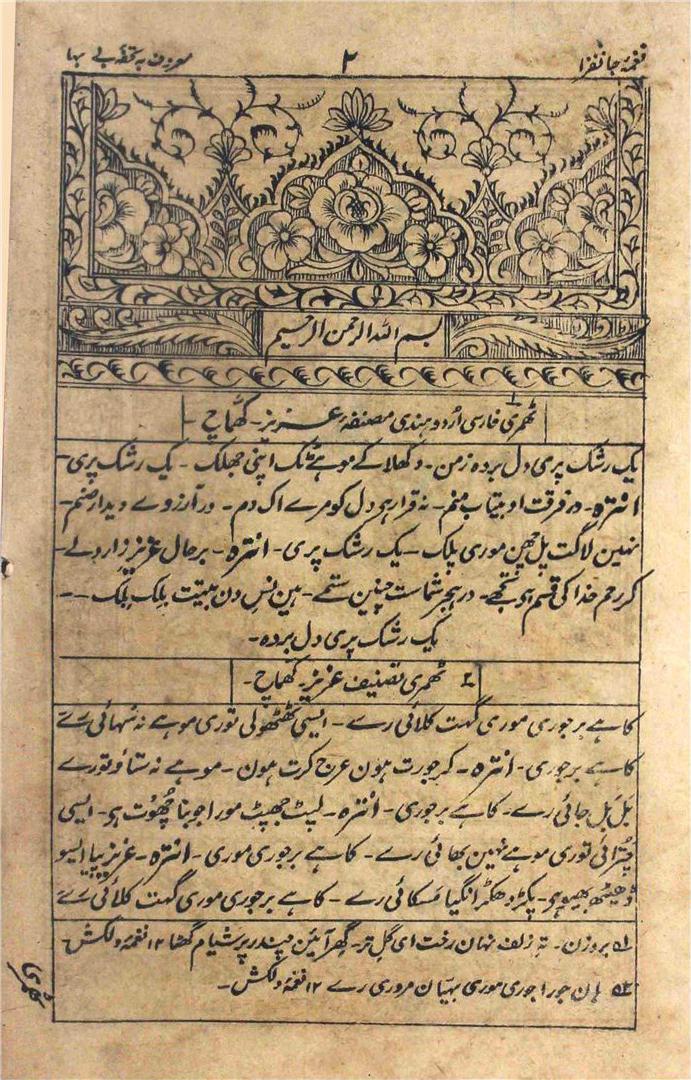 نغمۂ جانفزا
۲
معروف بہ تحفۂ بے بہا
بسم اللہ الرحمن الرحیم
۱ ٹھمری فارسی اُردو ہندی مصنفہ عزیز۔ کھماچ۔
یک رشک پری دل بردہ زمن۔ دکھلا کے موہے ٹک اپنی جھلک ۔ یک رشک پری۔
انترہ۔ در فرقت او بیتاب منم۔ نہ قرار ہی دل کو مرے اک دم۔ در آرزوے دیدار صنم۔
نہین لاگت پل چھن موری پلک۔ یک رشک پری۔ انترہ۔ بر حال عزیز زار دلے۔
کر رحم خدا کی قسم ہو تجھے۔ در ہجر شماست چنین ستمے۔ ہین نس دن بیتت بلک بلک۔۔
یک رشک پری دل بردہ۔
۲ ٹھمری تصنیف عزیز۔ کھماچ۔
کاہے برجوری موری گہت کلائی رے۔ ایسی ٹھٹھولی توری موہے نہ سُہائی رے
کاہے برجوری۔ انترہ۔ کر جورت ہون عرج کرت ہون۔ موہے نہ ستاؤ تورے
بَل بَل جائی رے۔ کاہے برجوری۔ انترہ۔ لپٹ جھپٹ مورا جوبنا چھُوَت ہو۔ ایسی
چترائی توری موہے نہین بھائی رے۔ کاہے برجوری موری۔ انترہ۔ عزیز پیا ایسو
ڈھیٹھ بھیو ہی۔ پکڑ دھکڑ انگیا مَسکائی رے۔ کاہے برجوری موری گہت کلائی رے
۱ بروزن۔ تہ زلف نہان رخت ای گل تر۔ گھر آئین چندر پر شیام گھٹا ۱۲ نغمۂ دلکش
۲ ہان جورا جوری موری بہیّان مروری رے ۱۲ نغمۂ دلکش۔